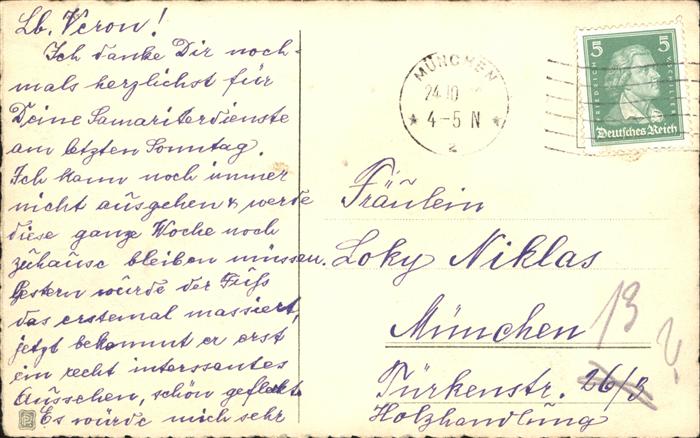 Lb. Veron!
Ich danke Dir noch-
mals herzlichst für
Deine Samariterdienste
am letzten Sonntag.
Ich kann noch immer
nicht ausgehen & werde
diese ganze Woche noch
zuhause bleiben müssen.
Gestern wurde der Fuß
das erstemal massiert,
jetzt bekommt er erst
ein recht interssantes
Aussehen, schön gefleckt.
Es würde mich sehr
MÜNCHEN
24.10
4-5 N
2
5 5
FRIEDRICH
V. SCHILLER
Deutsches Reich
Fräulein
Loky Niklas
München
13
?
Türkenstr. 26/3
Holzhandlung